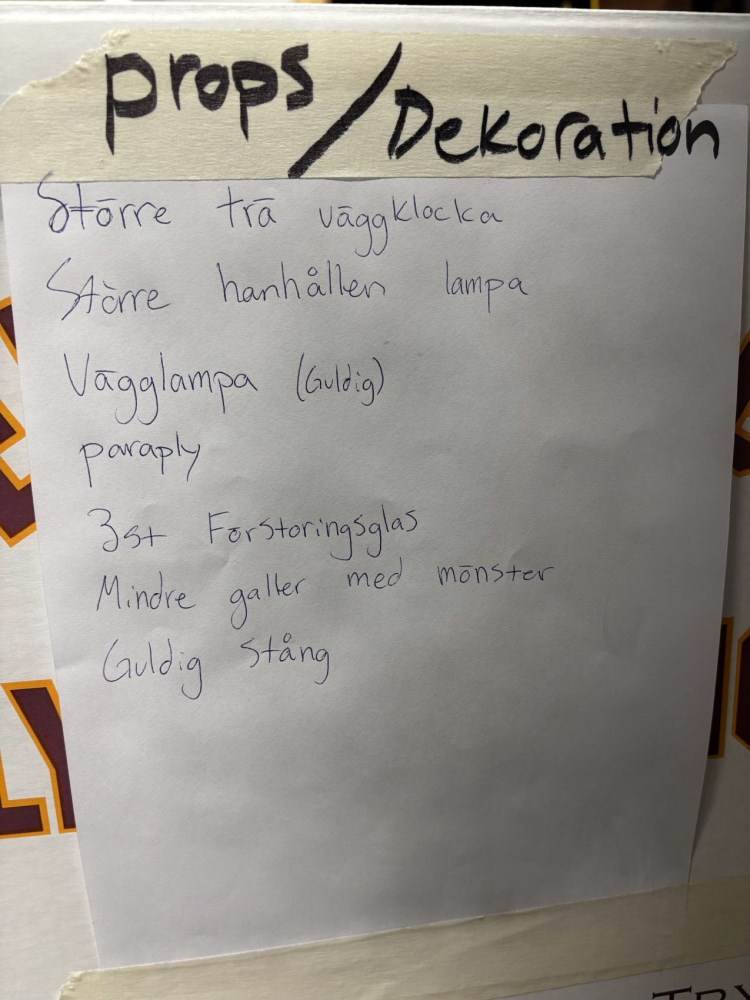 props/Dekoration
Större trä väggklocka
Större hanhållen lampa
Vägglampa (Guldig)
paraply
3st Förstoringsglas
Mindre galler med mönster
Guldig stång
LY
TRY